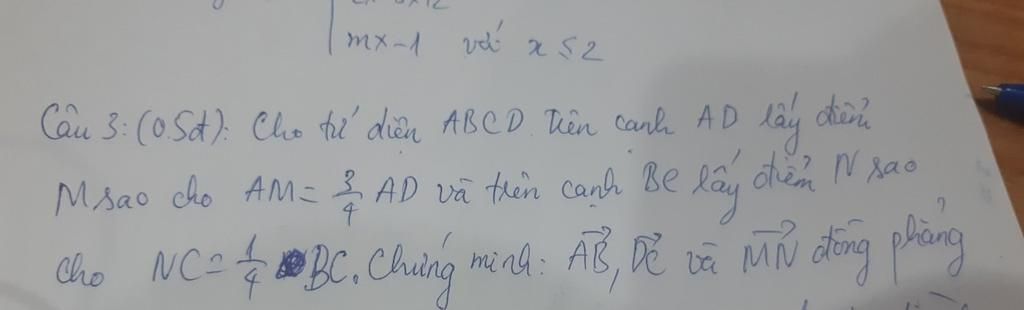 mx-1 với x ≤ 2
Câu 3: (0.5đ): Cho tứ diện ABCD. Trên cạnh AD lấy điểm
M sao cho AM = 3/4 AD và trên cạnh BC lấy điểm N sao
cho NC = 1/4 BC. Chứng minh: \vec{AB}, \vec{DC} và \vec{MN} đồng phẳng